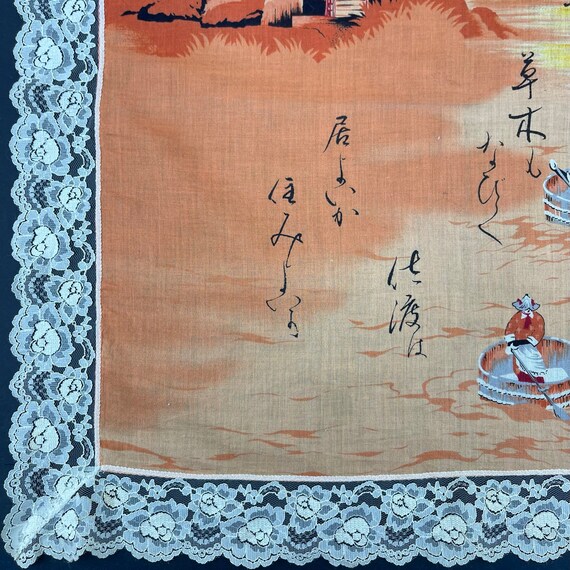 草木も
なびく
佐渡は
居よいか
住みよいか